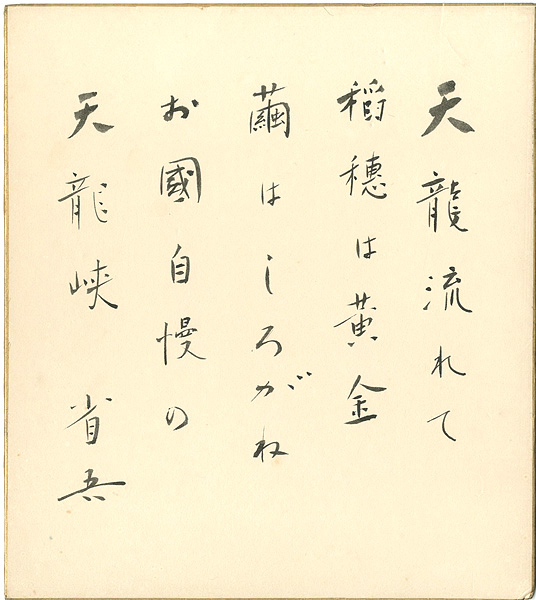 天龍流れて
稻穗は黄金
繭はしろがね
お國自慢の
天龍峡 省吾